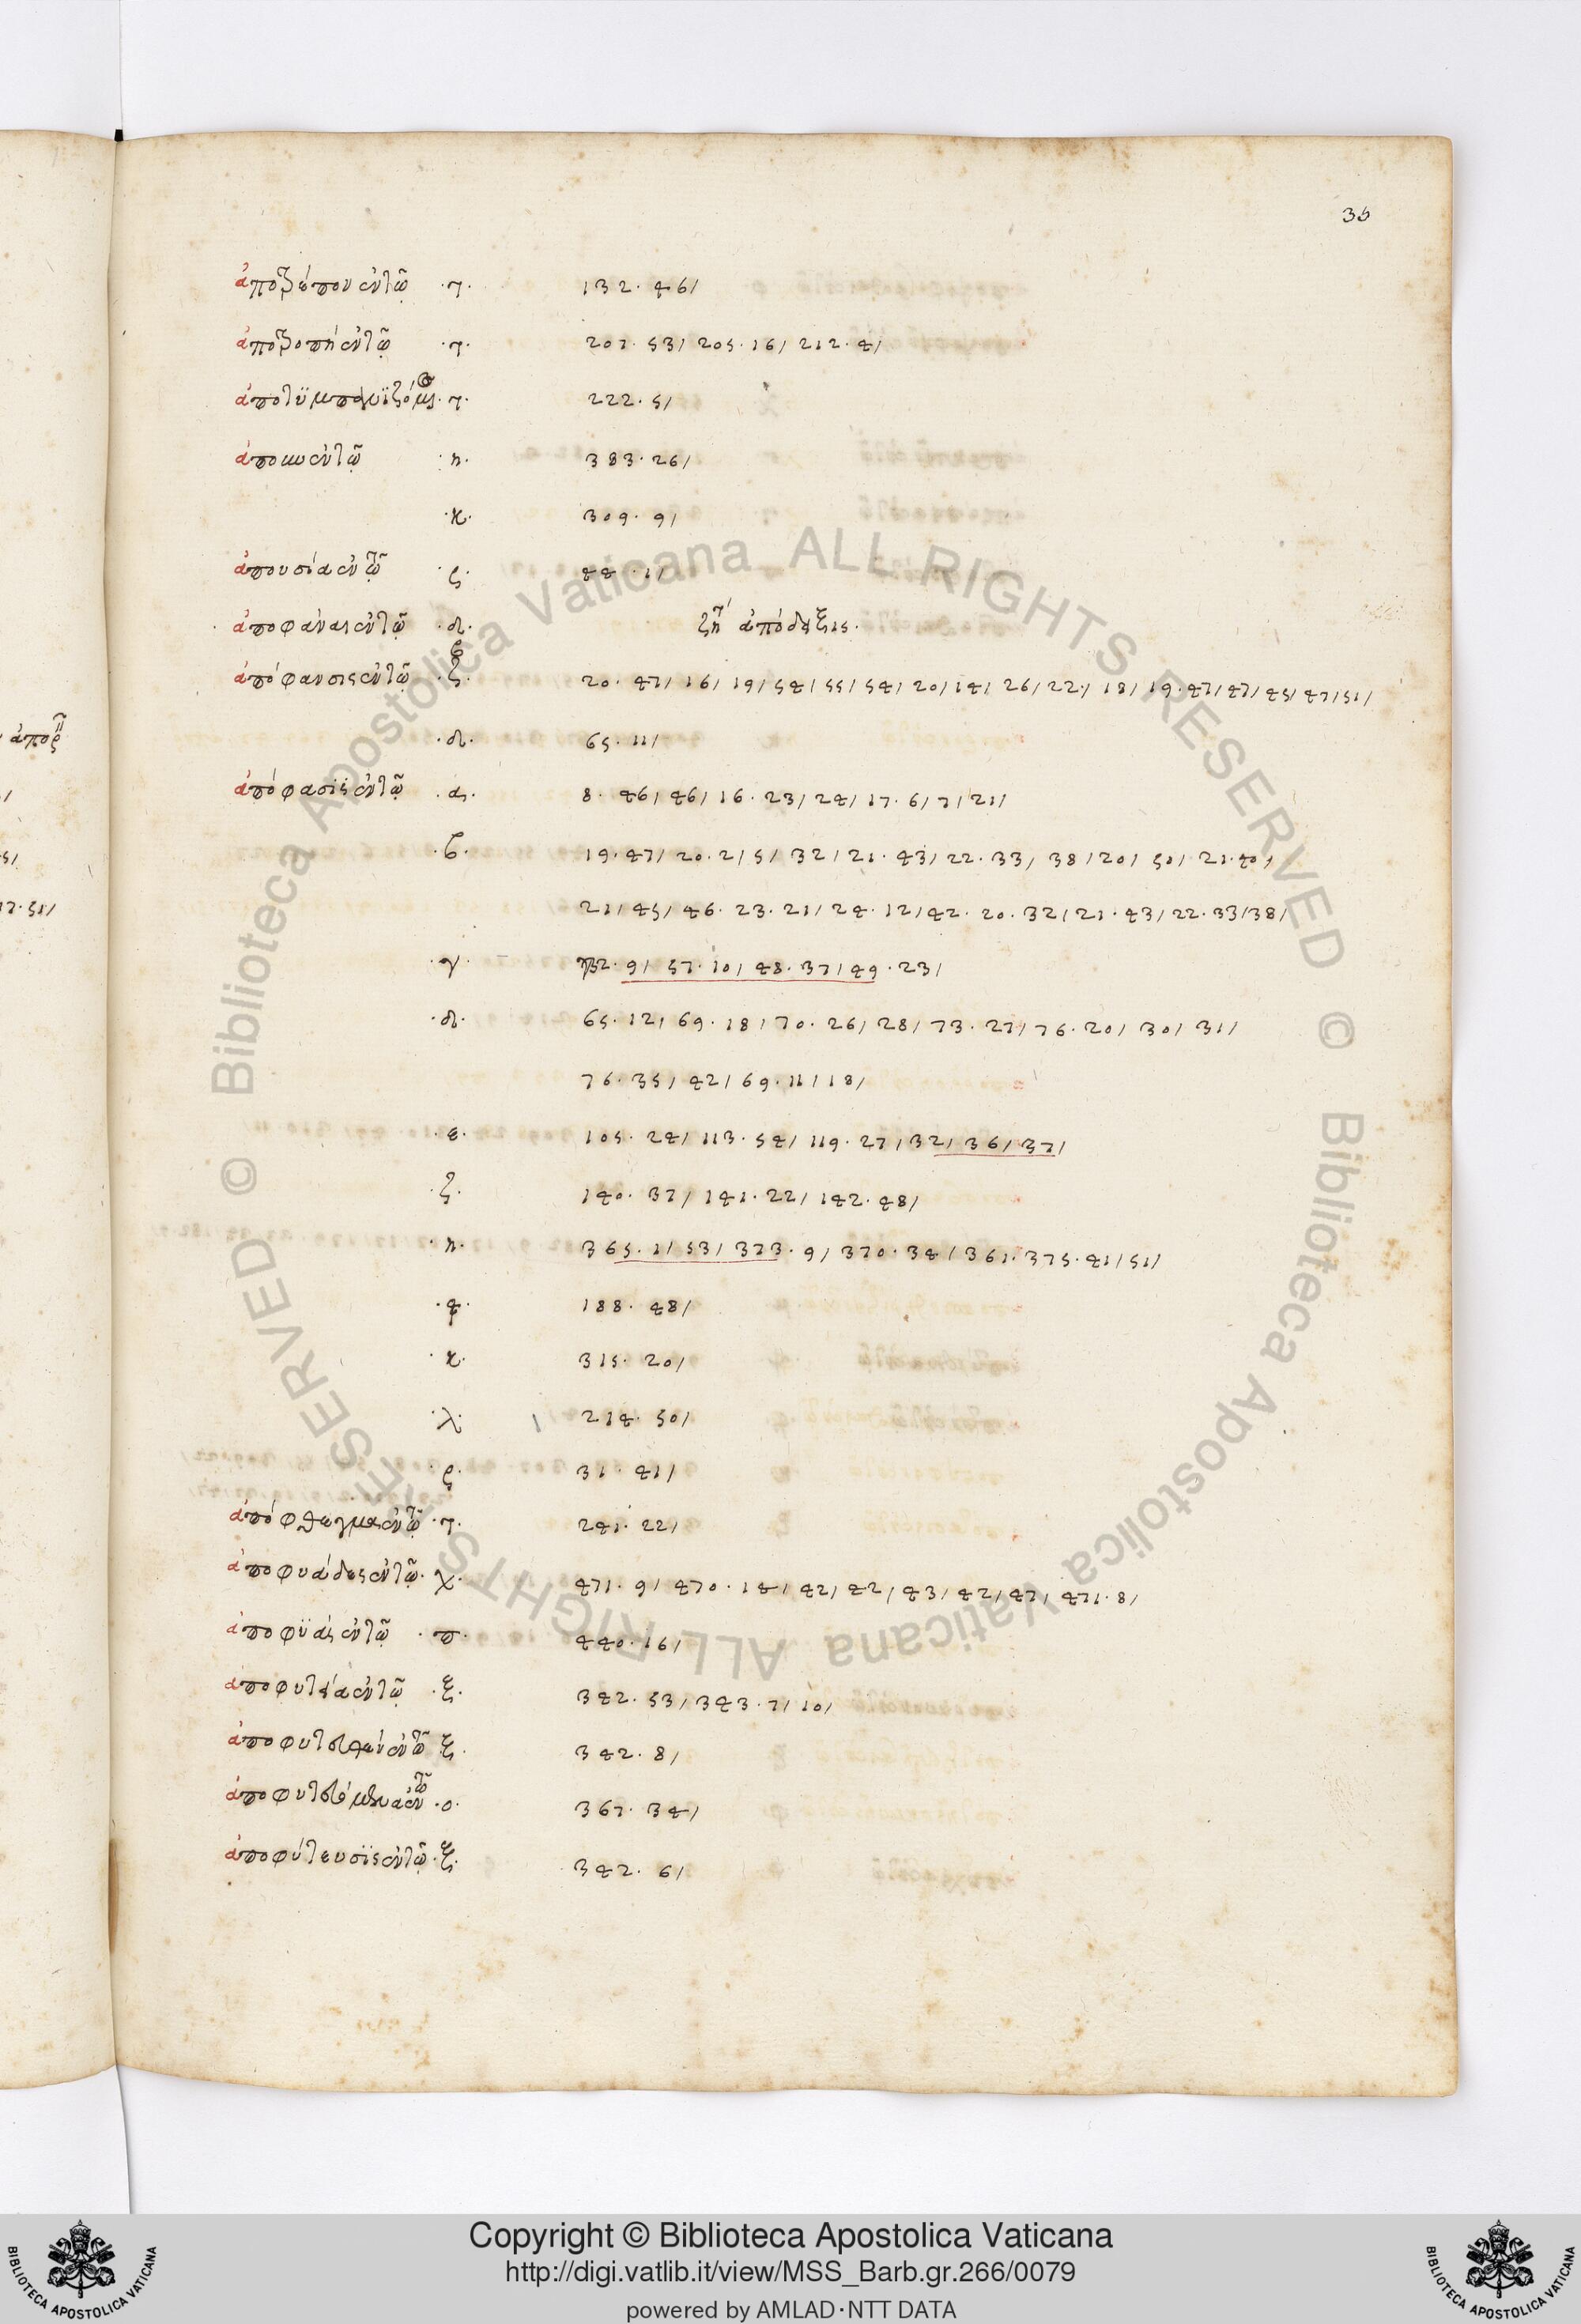 36
ἀποτρέπον ἐν τῷ ·τ· 132 · 46/
ἀποτροπή ἐν τῷ ·τ· 201 · 53/ 205 · 16/ 212 · 4/
·τ· 222 · 5/
ἐν τῷ ·η· 383 · 26/
·κ· 309 · 9/
ἀπουσία ἐν τῷ ·ς· 44 · 1/
ἀποφάναι ἐν τῷ ·δ· ζήτ ἀπόδειξις·
ἀπόφανσις ἐν τῷ ·β· 20 · 47/ 16/ 19/ 54/ 55/ 54/ 20/ 14/ 26/ 22/ 18/ 19 · 47/ 47/ 45/ 47/ 51/
·δ· 65 · 11/
ἀπόφασις ἐν τῷ ·α· 8 · 46/ 46/ 16 · 23/ 24/ 17 · 6/ 7/ 21/
·β· 19 · 47/ 20 · 2/ 5/ 32/ 21 · 43/ 22 · 33/ 38/ 20/ 50/ 21 · 40/
21/ 45/ 46 · 23 · 21/ 24 · 12/ 42 · 20 · 32/ 21 · 43/ 22 · 33/ 38/
·γ· 32 · 9/ 57 · 10/ 48 · 37/ 49 · 23/
·δ· 65 · 12/ 69 · 18/ 70 · 26/ 28/ 73 · 27/ 76 · 20/ 30/ 31/
76 · 35/ 42/ 69 · 11/ 18/
·ε· 105 · 24/ 113 · 54/ 119 · 27/ 32/ 36/ 37/
·ζ· 140 · 37/ 141 · 22/ 142 · 48/
·η· 365 · 1/ 53/ 373 · 9/ 370 · 34/ 361 · 375 · 41/ 51/
188 · 48/
·κ· 315 · 20/
·λ· 214 · 50/
·ς· 31 · 41/
ἀπόφθεγμα ἐν τῷ ·τ· 241 · 22/
ἀποφυάδες ἐν τῷ ·χ· 471 · 9/ 470 · 14/ 42/ 42/ 43/ 42/ 47/ 471 · 8/
ἀποφυὰς ἐν τῷ ·π· 440 · 16/
ἀποφυτεία ἐν τῷ ·ξ· 342 · 53/ 343 · 7/ 10/
ἀποφυτευθέν ἐν τῷ ξ· 342 · 8/
ἀποφυτευόμενα ἐν τῷ ·ο· 367 · 34/
ἀποφύτευσις ἐν τῷ ·ξ· 342 · 6/
Copyright © Biblioteca Apostolica Vaticana
http://digi.vatlib.it/view/MSS_Barb.gr.266/0079
powered by AMLAD·NTT DATA
BIBLIOTECA APOSTOLICA VATICANA
BIBLIOTECA APOSTOLICA VATICANA
© Biblioteca Apostolica Vaticana ALL RIGHTS RESERVED
© Biblioteca Apostolica Vaticana ALL RIGHTS RESERVED